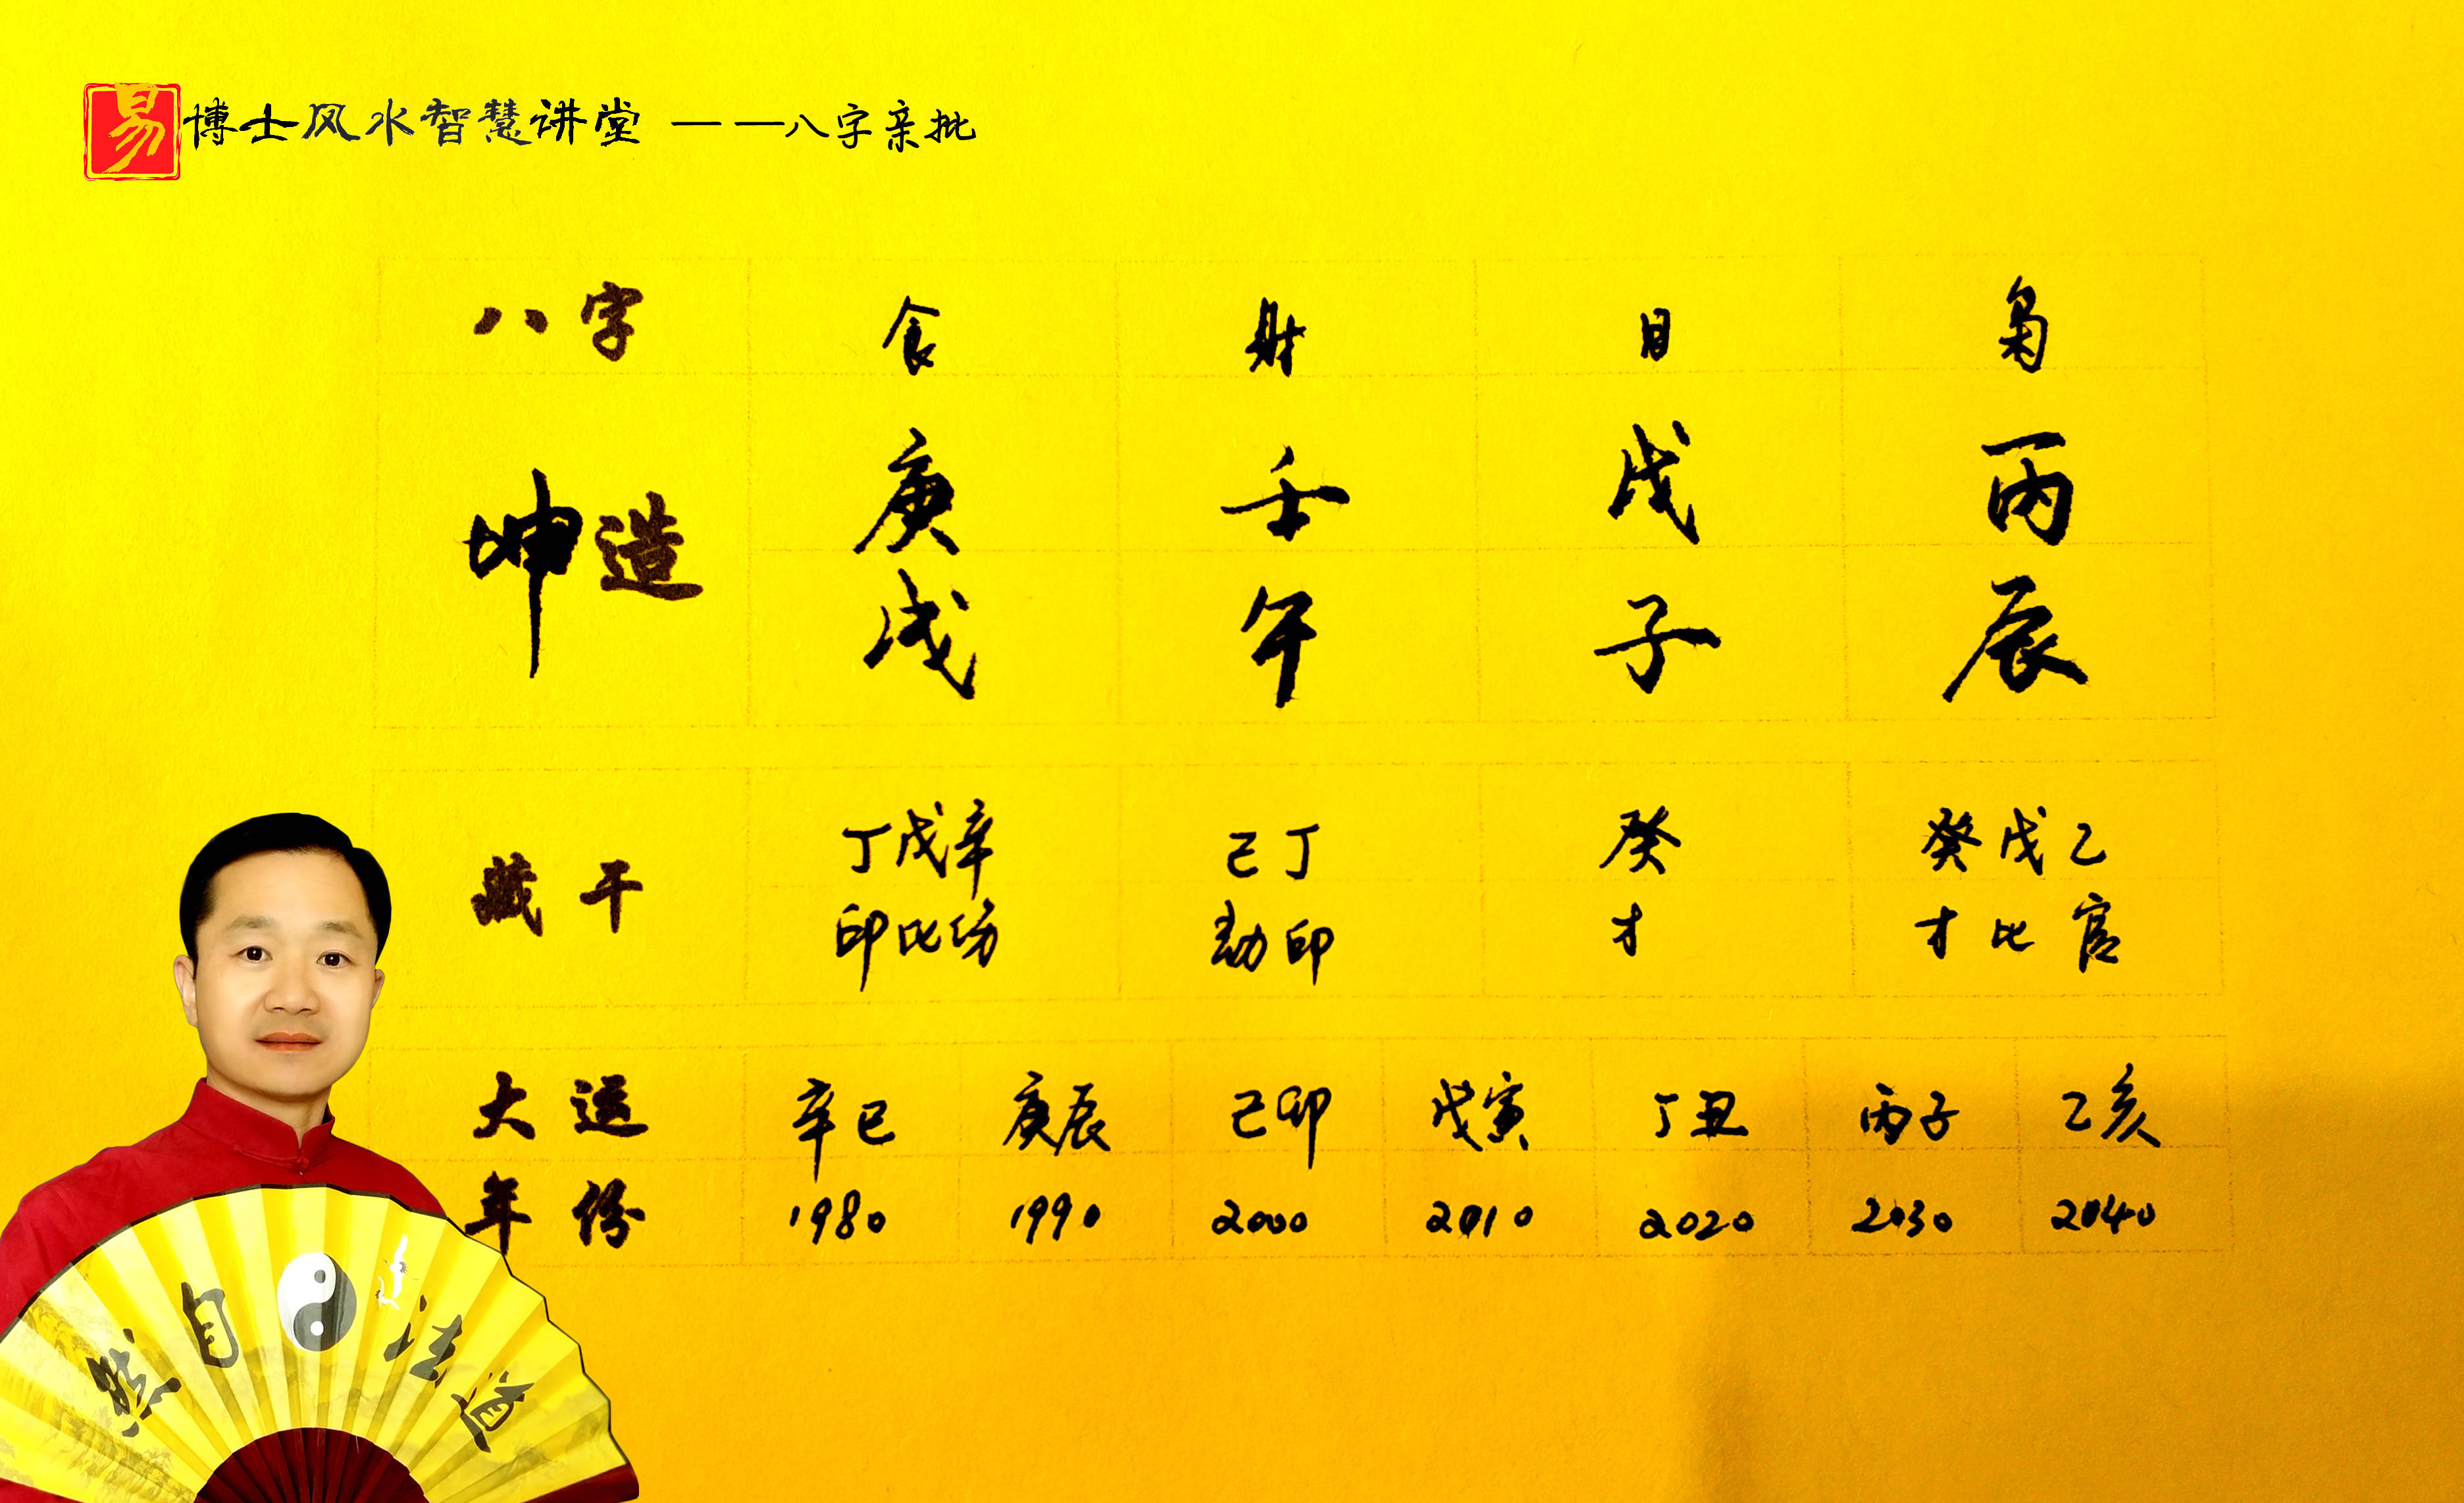 易博士风水智慧讲堂 ——八字亲批
八字 食 财 日 枭
坤造 庚 壬 戊 丙
戌 午 子 辰
藏干 丁戊辛 己丁 癸 癸戊乙
印比伤 劫印 才 才比官
大运 辛巳 庚辰 己卯 戊寅 丁丑 丙子 乙亥
年份 1980 1990 2000 2010 2020 2030 2040
然自法道